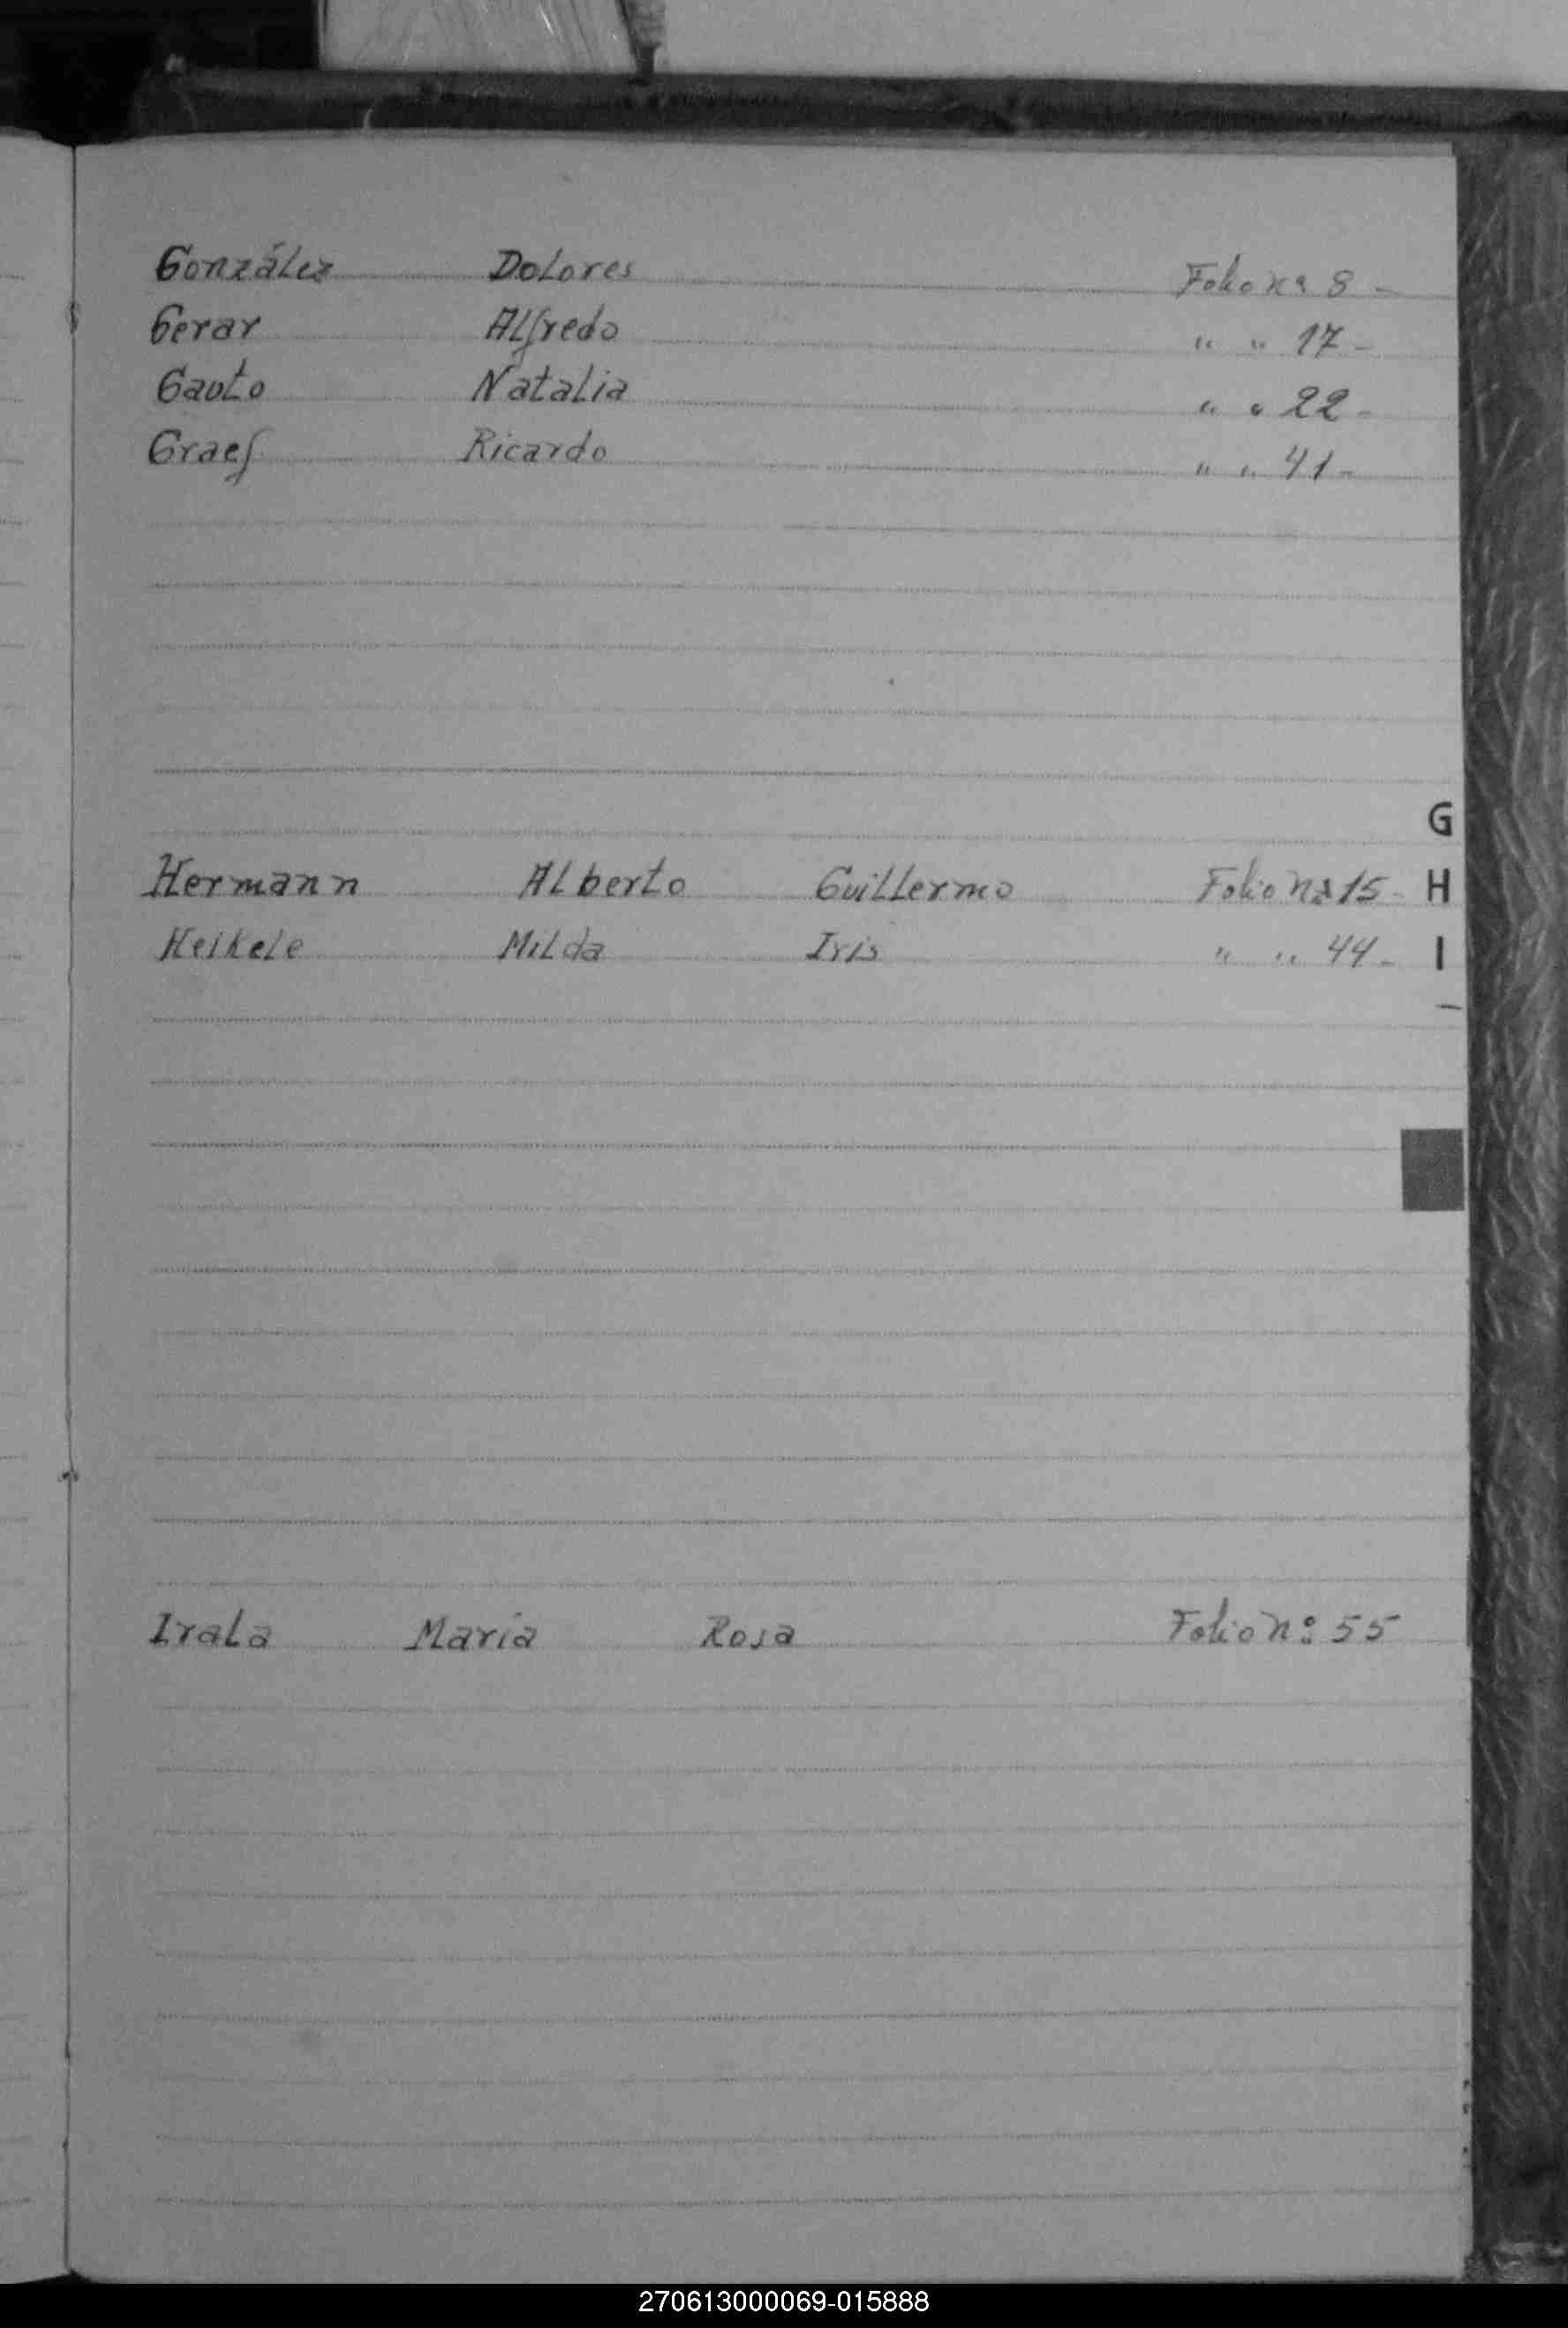 González Dolores Folio nº 8 -
Gerar Alfredo " " 17 -
Gauto Natalia " " 22 -
Graef Ricardo " " 41 -
G
Hermann Alberto Guillermo Folio Nº 15 - H
Heikele Milda Iris " " 44 - I
Irala María Rosa Folio nº 55
270613000069-015888